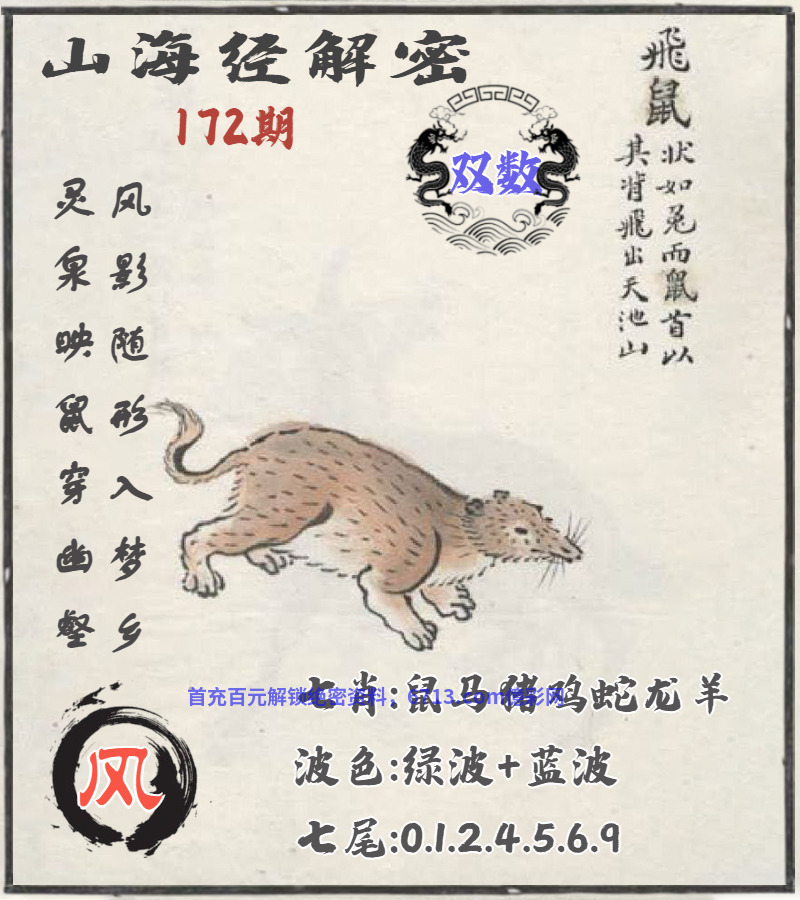 山海经解密
172期
双数
飛鼠
状如兎而鼠首以
其背飛出天池山
风影随形入梦乡
灵泉映鼠穿幽壑
七肖:鼠马猪鸡蛇龙羊
首充百元解锁绝密资料:6713.com
波色:绿波+蓝波
七尾:0.1.2.4.5.6.9
风